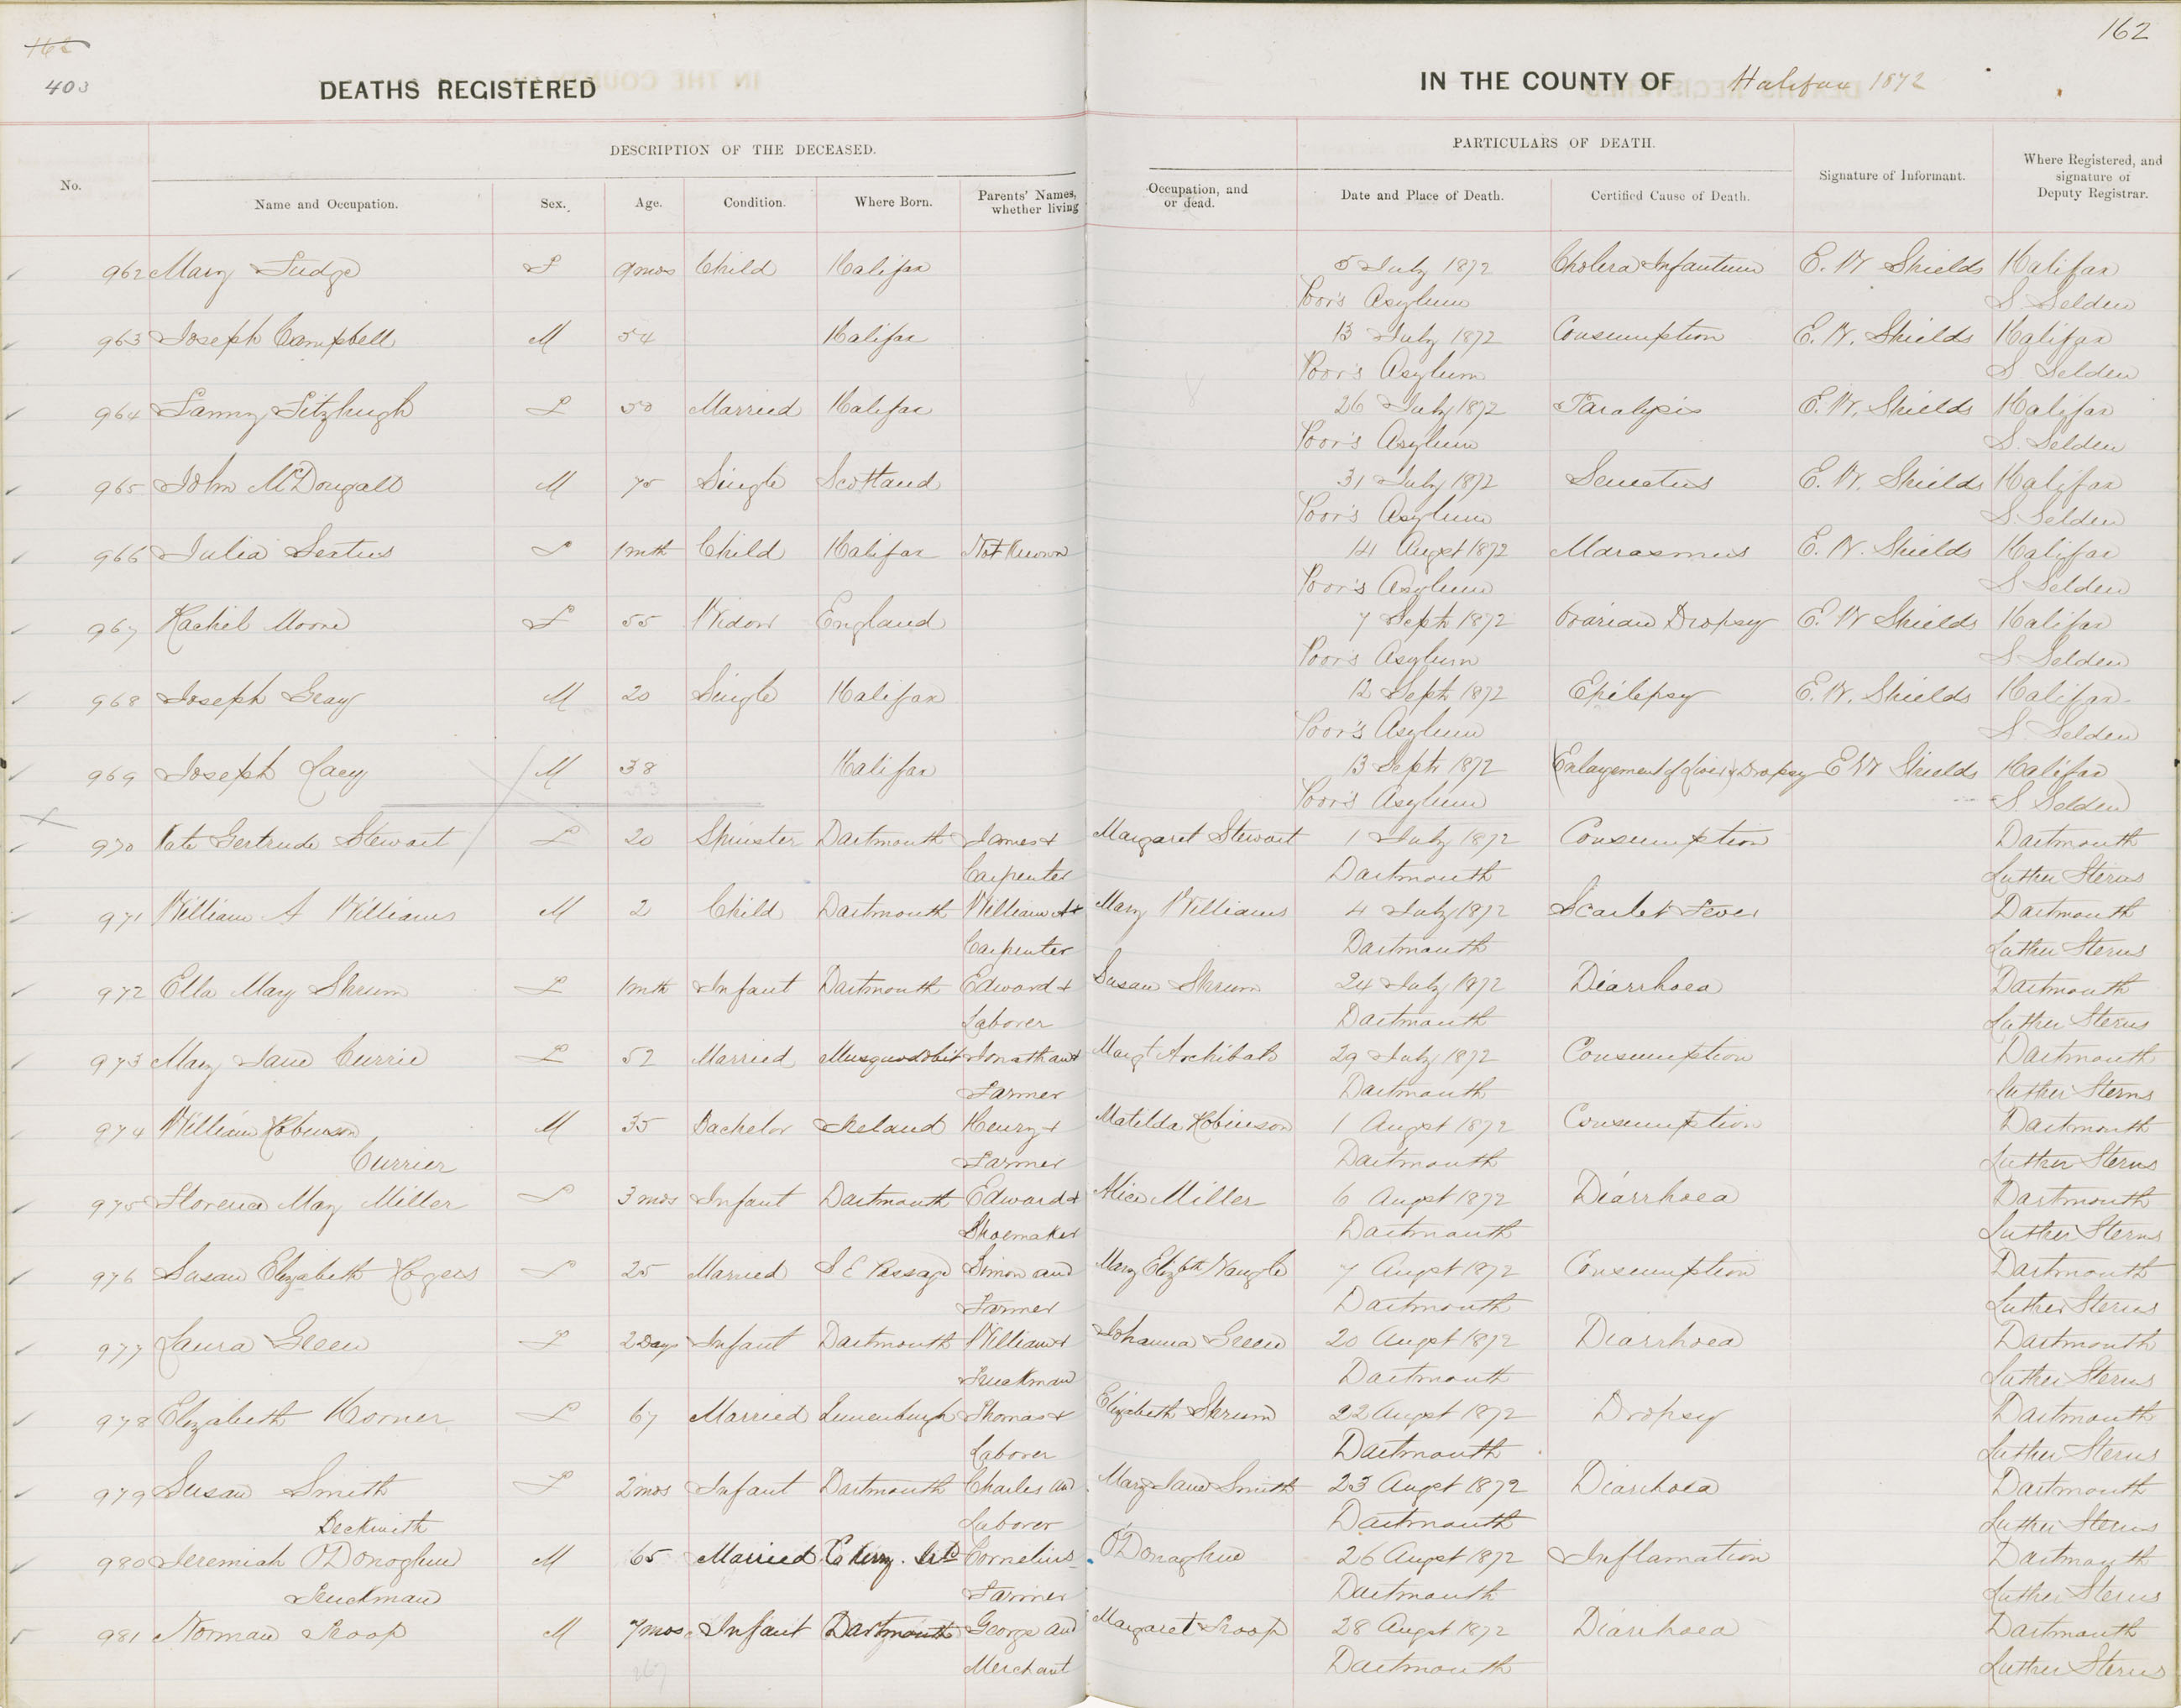 162
403
162
DEATHS REGISTERED IN THE COUNTY OF Halifax 1872
DESCRIPTION OF THE DECEASED. PARTICULARS OF DEATH.
No. Name and Occupation. Sex. Age. Condition. Where Born. Parents' Names, whether living Occupation, and or dead. Date and Place of Death. Certified Cause of Death. Signature of Informant. Where Registered, and signature of Deputy Registrar.
962 Mary Judge F 9mos Child Halifax 5 July 1872 Cholera Infantum E. W Shields Halifax
Poor's Asylum S Selden
963 Joseph Campbell M 54 Halifax 13 July 1872 Consumption E. W. Shields Halifax
Poor's Asylum S Selden
964 Fanny Fitzhugh F 50 Married Halifax 26 July 1872 Paralysis E. W. Shields Halifax
Poor's Asylum S. Selden
965 John McDougall M 75 Single Scotland 31 July 1872 E. W. Shields Halifax
Poor's Asylum S. Selden
966 Julia F 1mth Child Halifax Not Known 14 Augst 1872 Marasmus E. W. Shields Halifax
Poor's Asylum S Selden
967 Rachel Moore F 55 Widow England 7 Sept 1872 Ovarian Dropsy E. W Shields Halifax
Poor's Asylum S Selden
968 Joseph Gray M 20 Single Halifax 12 Sept 1872 Epilepsy E. W. Shields Halifax
Poor's Asylum S. Selden
969 Joseph Lacy M 38 Halifax 13 Sept 1872 Enlargement of Liver & Dropsy E W Shields Halifax
Poor's Asylum S Selden
970 Kate Gertrude Stewart F 20 Spinster Dartmouth James & Margaret Stewart 1 July 1872 Consumption Dartmouth
Carpenter Dartmouth Luther Sterns
971 William A Williams M 2 Child Dartmouth William A & Mary Williams 4 July 1872 Scarlet Fever Dartmouth
Carpenter Dartmouth Luther Sterns
972 Ella May Shrum F 1mth Infant Dartmouth Edward & Susan Shrum 24 July 1872 Diarrhoea Dartmouth
Laborer Dartmouth Luther Sterns
973 Mary Jane Currie F 52 Married Musquodobit Jonathan & Margt Archibald 29 July 1872 Consumption Dartmouth
Farmer Dartmouth Luther Sterns
974 William Robinson M 35 Bachelor Ireland Henry & Matilda Robinson 1 Augst 1872 Consumption Dartmouth
Currier Farmer Dartmouth Luther Sterns
975 Florence May Miller F 3 mos Infant Dartmouth Edward & Alice Miller 6 Augst 1872 Diarrhoea Dartmouth
Shoemaker Dartmouth Luther Sterns
976 Susan Elizabeth Rogers F 25 Married S E Passage Simon and Mary Elizbth Naugle 7 Augst 1872 Consumption Dartmouth
Farmer Dartmouth Luther Sterns
977 Laura Green F 2 Days Infant Dartmouth William & Johanna Green 20 Augst 1872 Diarrhoea Dartmouth
Truckman Dartmouth Luther Sterns
978 Elizabeth Horner F 67 Married Lunenburgh Thomas & Elizabeth Shrum 22 Augst 1872 Dropsy Dartmouth
Laborer Dartmouth Luther Sterns
979 Susan Smith F 2 mos Infant Dartmouth Charles and Mary Jane Smith 23 Augst 1872 Diarrhoea Dartmouth
Beckwith Laborer Dartmouth Luther Sterns
980 Jeremiah O'Donoghue M 65 Married Co Kerry. Irld Cornelius O'Donaghue 26 Augst 1872 Inflamation Dartmouth
Truckman Farmer Dartmouth Luther Sterns
981 Norman Troop M 7mos Infant Dartmouth George and Margaret Troop 28 Augst 1872 Diarrhoea Dartmouth
Merchant Dartmouth Luther Sterns